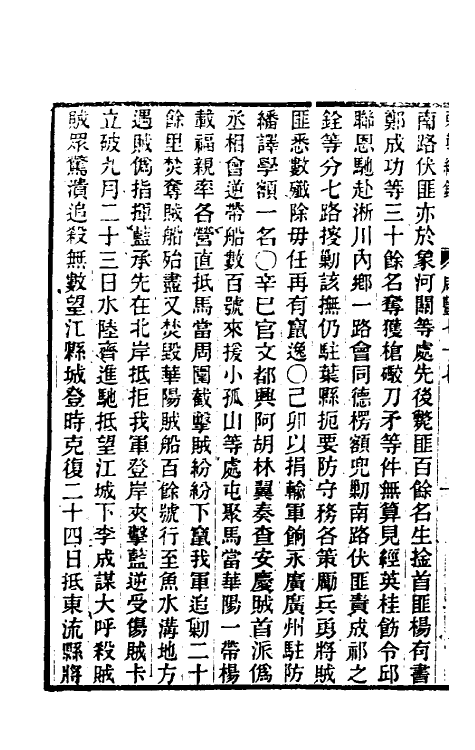 南路伏匪亦於象河關等處先後斃匪百餘名生擒首匪楊有書
鄭成功等三十餘名奪獲槍礮刀矛等件無算見經英桂飭令邱
聯恩馳赴淅川內鄉一路會同德楞額兜勦南路伏匪責成邧之
銓等分七路搜勦該撫仍駐葉縣扼要防守務各策勵兵勇將賊
匪悉數殲除毋任再有竄逸○己卯以捐輸軍餉永廣廣州駐防
繙譯學額一名○辛巳官文都興阿胡林翼奏查安慶賊首派僞
丞相會逆帶船數百號來援小孤山等處屯聚馬當華陽一帶楊
載福親率各營直抵馬當周圍截擊賊紛紛下竄我軍追勦二十
餘里焚奪賊船殆盡又焚毀華陽賊船百餘號行至魚水溝地方
遇賊僞指揮藍承先在北岸抵拒我軍登岸夾擊藍逆受傷賊卡
立破九月二十三日水陸齊進馳抵望江城下李成謀大呼殺賊
賊眾驚潰追殺無數望江縣城登時克復二十四日抵東流縣將